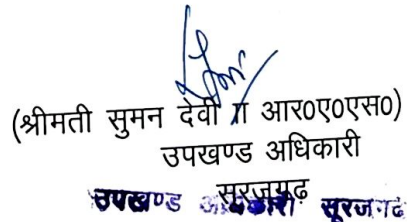 (श्रीमती सुमन देवी आर०ए०एस०)
उपखण्ड अधिकारी
सूरजगढ़
उपखण्ड अधिकारी सूरजगढ